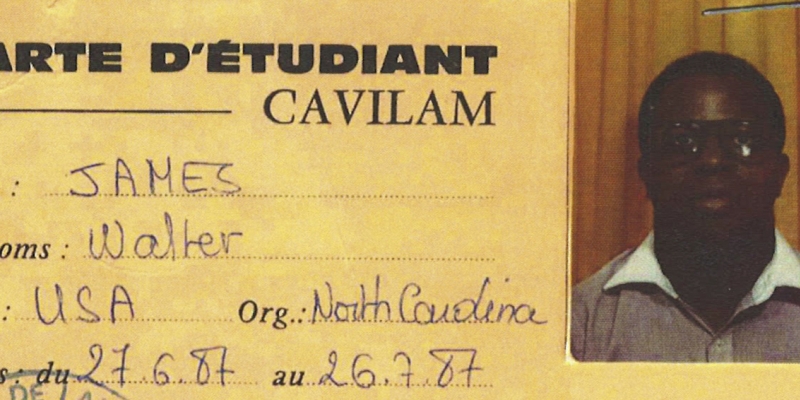 ARTE D'ÉTUDIANT
CAVILAM
: JAMES
oms : Walter
: USA Org.: North Carolina
s : du 27.6.87 au 26.7.87
DE LA